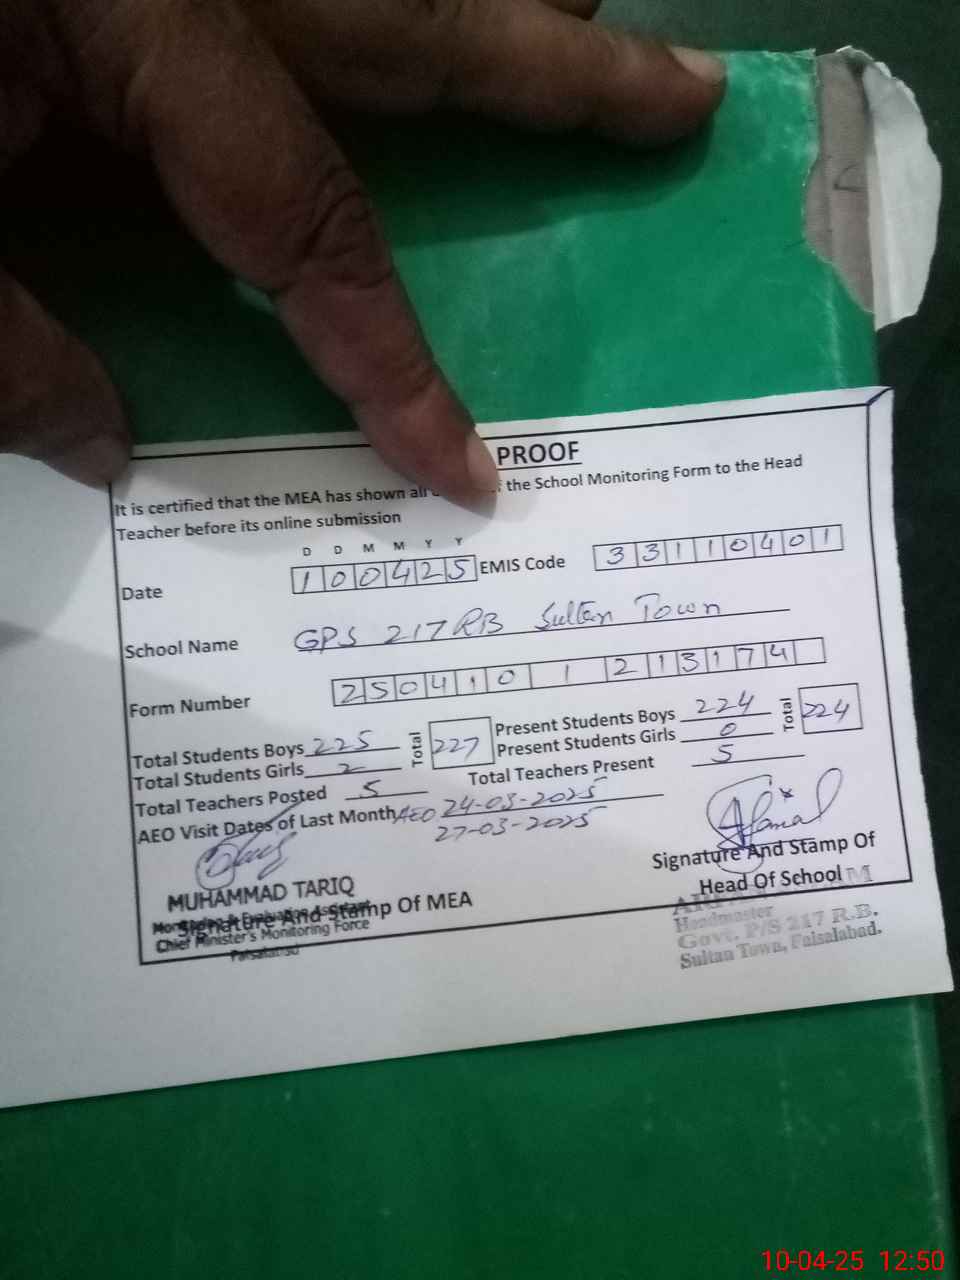 PROOF
It is certified that the MEA has shown all the School Monitoring Form to the Head
Teacher before its online submission
D D M M Y Y
Date 100425 EMIS Code 33110401
School Name GPS 217 RB Sultan Town
Form Number 250410 1 213174
Total Students Boys 225 Total 227 Present Students Boys 224 Total 224
Total Students Girls 2 Present Students Girls 0
Total Teachers Posted 5 Total Teachers Present 5
AEO Visit Dates of Last Month AEO 24-03-2025
27-03-2025
MUHAMMAD TARIQ
Signature And Stamp Of MEA
Chief Minister's Monitoring Force
Faisalabad
Signature And Stamp Of
Head Of School
Headmaster
Govt. P/S 217 R.B.
Sultan Town, Faisalabad.
10-04-25 12:50